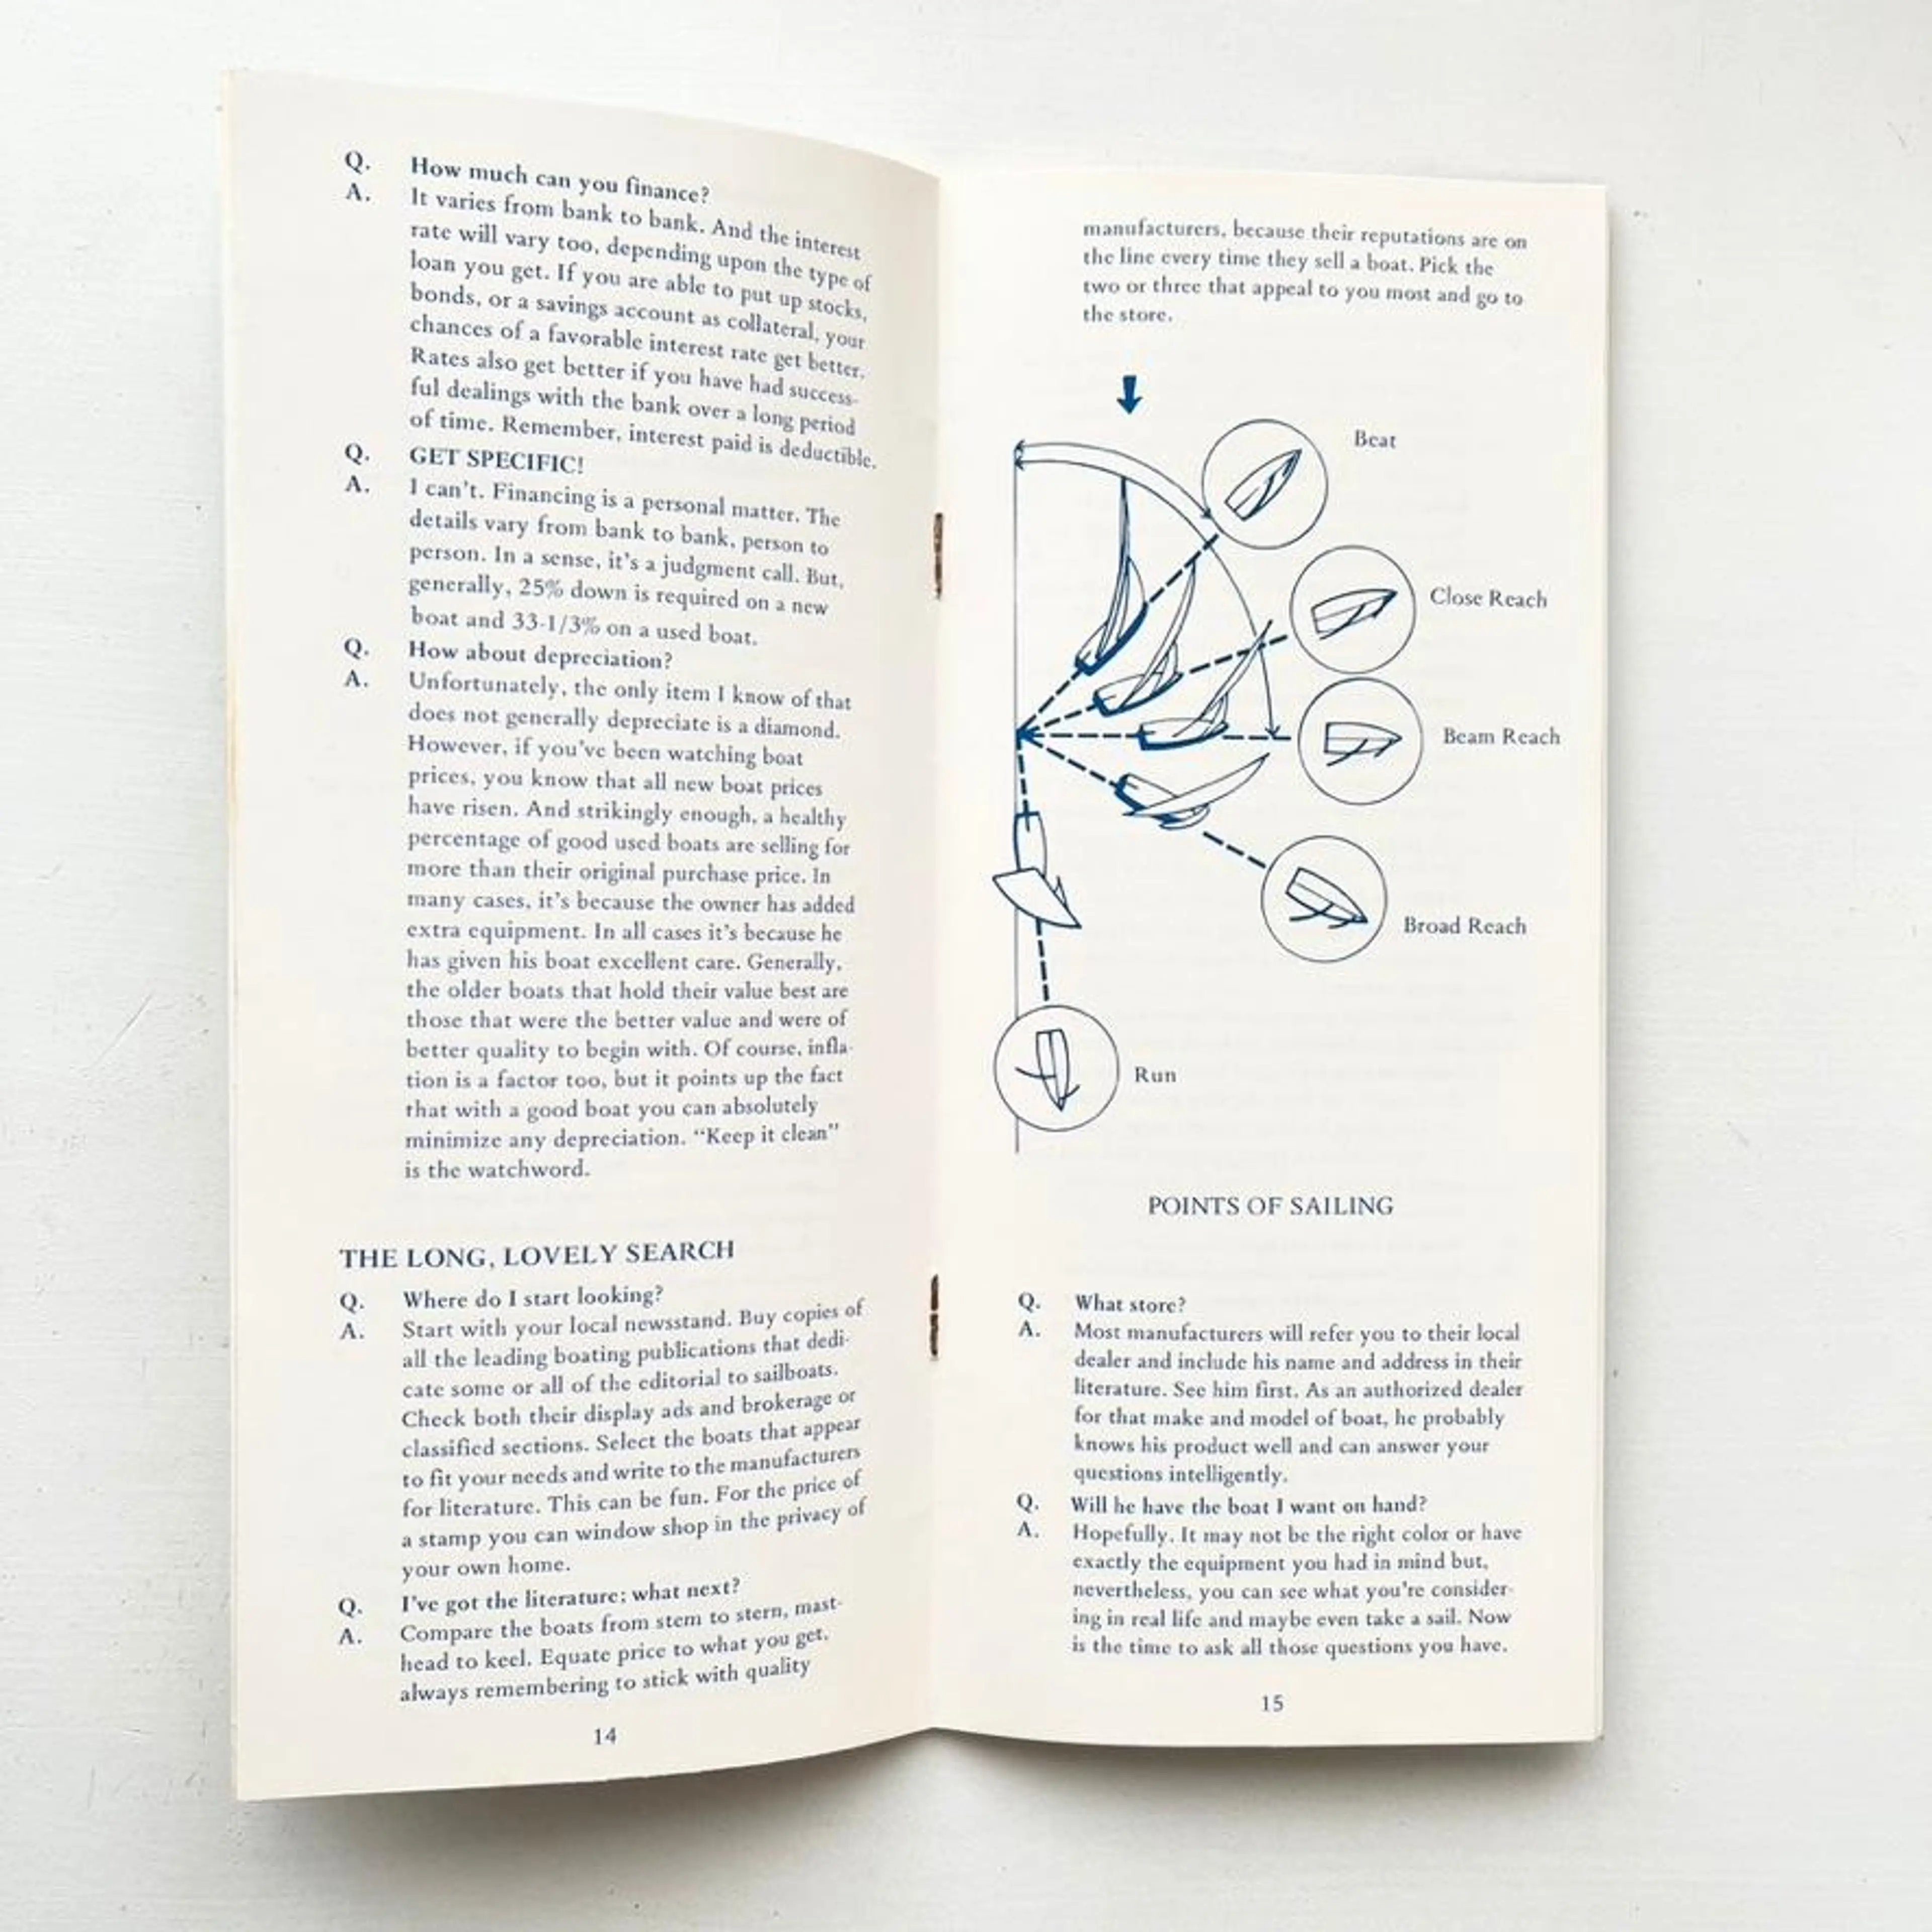 Q. How much can you finance?
A. It varies from bank to bank. And the interest
rate will vary too, depending upon the type of
loan you get. If you are able to put up stocks,
bonds, or a savings account as collateral, your
chances of a favorable interest rate get better.
Rates also get better if you have had success-
ful dealings with the bank over a long period
of time. Remember, interest paid is deductible.
Q. GET SPECIFIC!
A. I can't. Financing is a personal matter. The
details vary from bank to bank, person to
person. In a sense, it's a judgment call. But,
generally, 25% down is required on a new
boat and 33-1/3% on a used boat.
Q. How about depreciation?
A. Unfortunately, the only item I know of that
does not generally depreciate is a diamond.
However, if you've been watching boat
prices, you know that all new boat prices
have risen. And strikingly enough, a healthy
percentage of good used boats are selling for
more than their original purchase price. In
many cases, it's because the owner has added
extra equipment. In all cases it's because he
has given his boat excellent care. Generally,
the older boats that hold their value best are
those that were the better value and were of
better quality to begin with. Of course, infla-
tion is a factor too, but it points up the fact
that with a good boat you can absolutely
minimize any depreciation. “Keep it clean”
is the watchword.
THE LONG, LOVELY SEARCH
Q. Where do I start looking?
A. Start with your local newsstand. Buy copies of
all the leading boating publications that dedi-
cate some or all of the editorial to sailboats.
Check both their display ads and brokerage or
classified sections. Select the boats that appear
to fit your needs and write to the manufacturers
for literature. This can be fun. For the price of
a stamp you can window shop in the privacy of
your own home.
Q. I've got the literature; what next?
A. Compare the boats from stem to stern, mast-
head to keel. Equate price to what you get,
always remembering to stick with quality
14
manufacturers, because their reputations are on
the line every time they sell a boat. Pick the
two or three that appeal to you most and go to
the store.
Beat
Close Reach
Beam Reach
Broad Reach
Run
POINTS OF SAILING
Q. What store?
A. Most manufacturers will refer you to their local
dealer and include his name and address in their
literature. See him first. As an authorized dealer
for that make and model of boat, he probably
knows his product well and can answer your
questions intelligently.
Q. Will he have the boat I want on hand?
A. Hopefully. It may not be the right color or have
exactly the equipment you had in mind but,
nevertheless, you can see what you're consider-
ing in real life and maybe even take a sail. Now
is the time to ask all those questions you have.
15